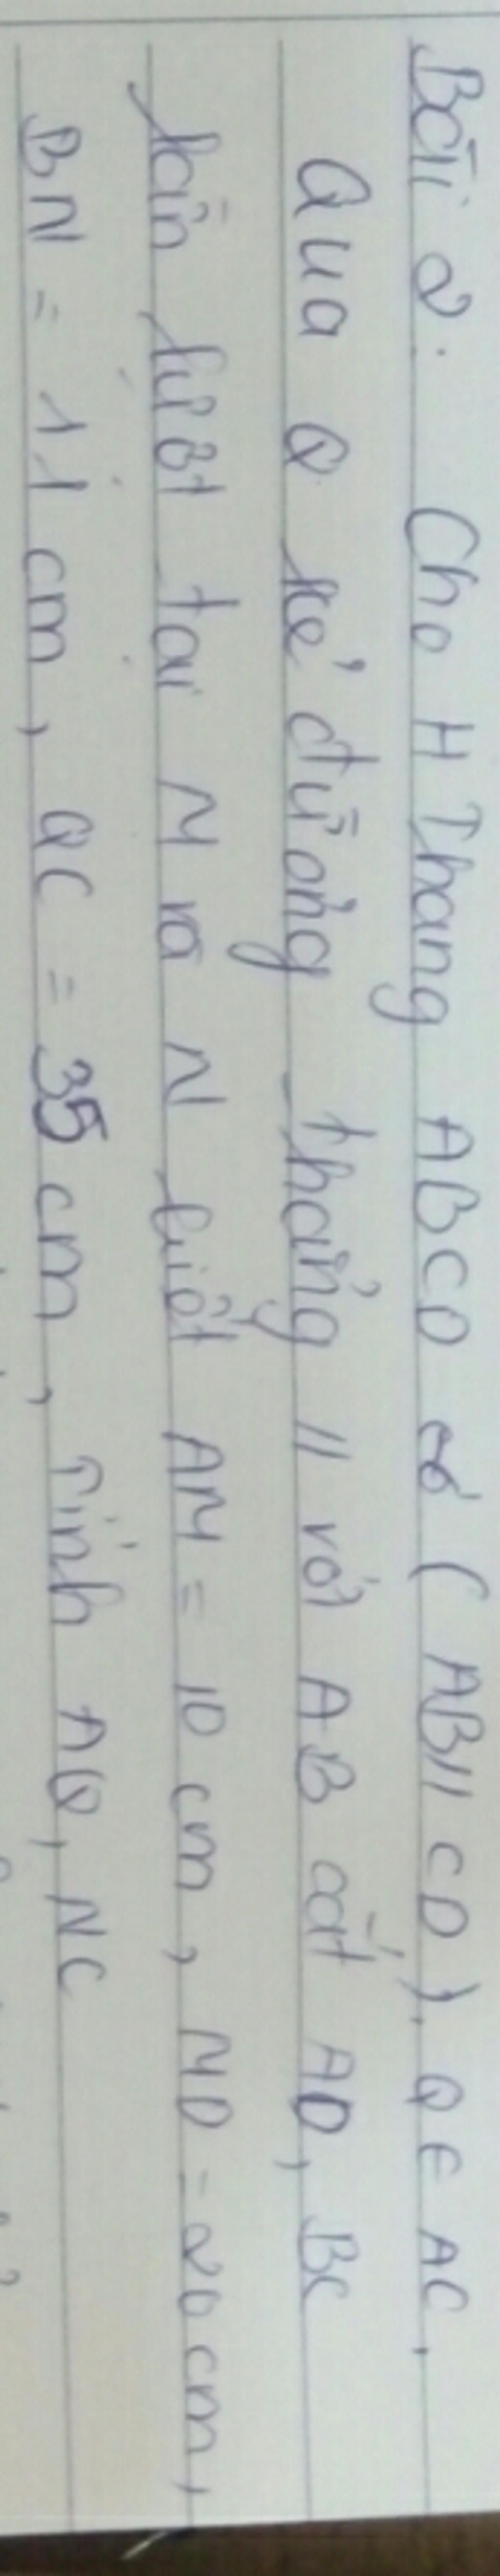 Bài 2. Cho H Thang ABCD có (AB // CD). Q ∈ AC.
Qua Q kẻ đường thẳng // với AB cắt AD, BC
lần lượt tại M và N biết AM = 10 cm, MD = 20 cm,
BN = 11 cm, QC = 35 cm, Tính AQ, NC